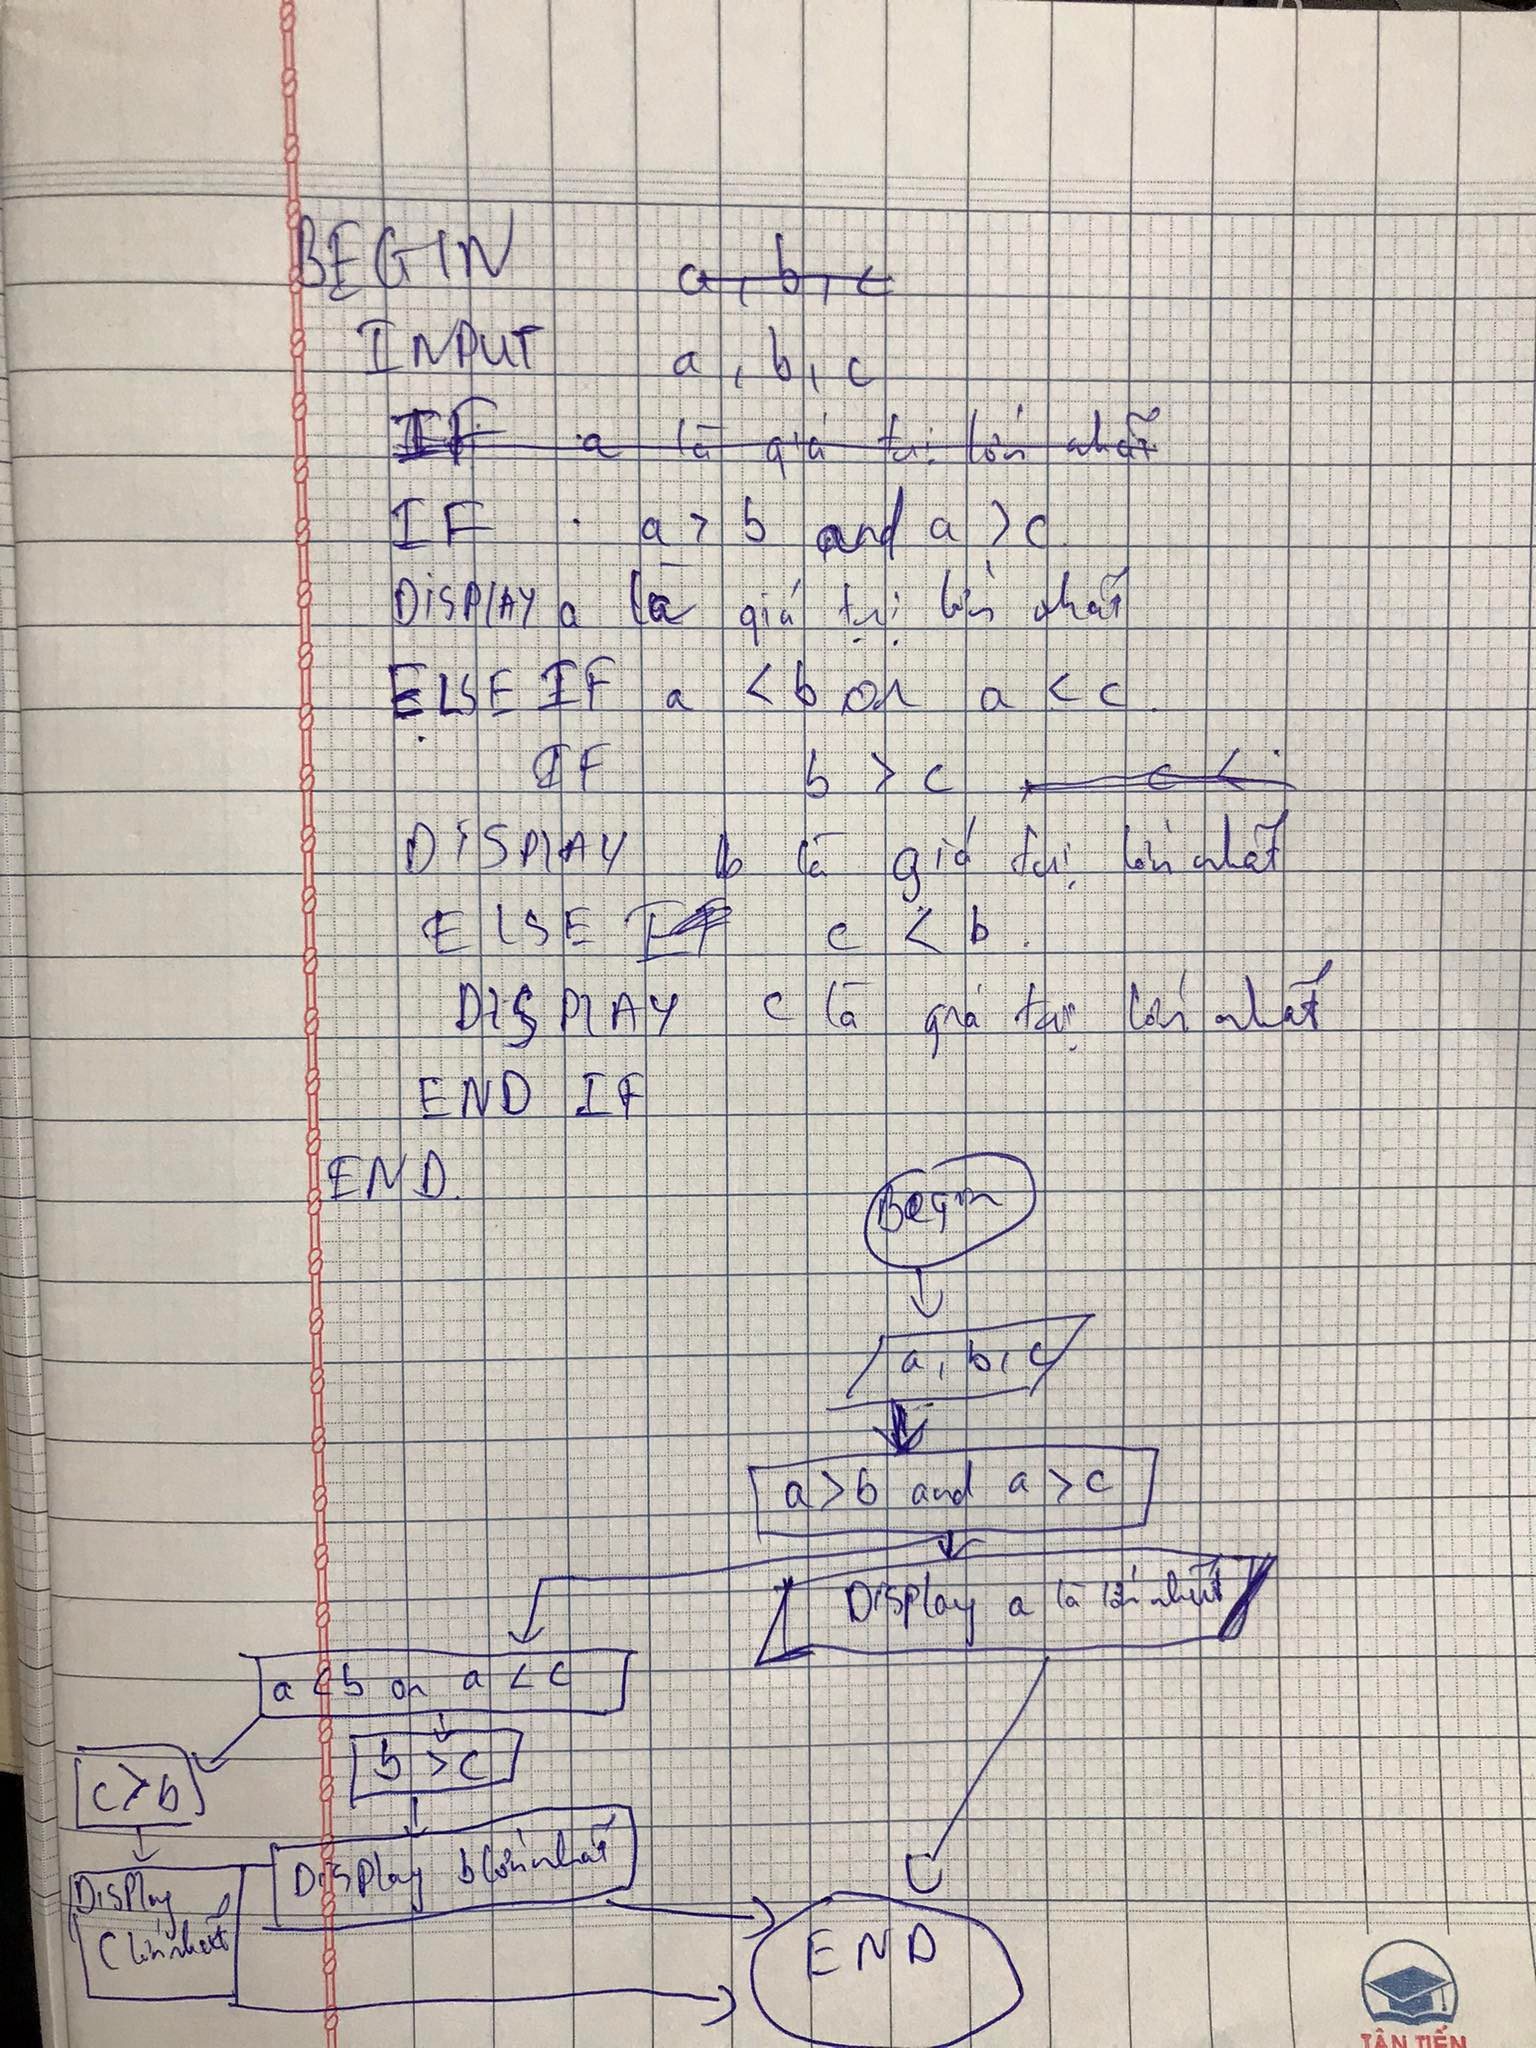 BEGIN a, b, c
INPUT a, b, c
IF a là giá trị lớn nhất
IF a > b and a > c
DISPLAY a là giá trị lớn nhất
ELSE IF a < b or a < c.
IF b > c c <
DISPLAY b là giá trị lớn nhất
ELSE IF c < b.
DISPLAY c là giá trị lớn nhất
END IF
END.
Begin
a, b, c
a > b and a > c
Display a là lớn nhất
a < b or a < c
b > c
c > b
Display b lớn nhất
Display
C lớn nhất
END
TÂN TIẾN